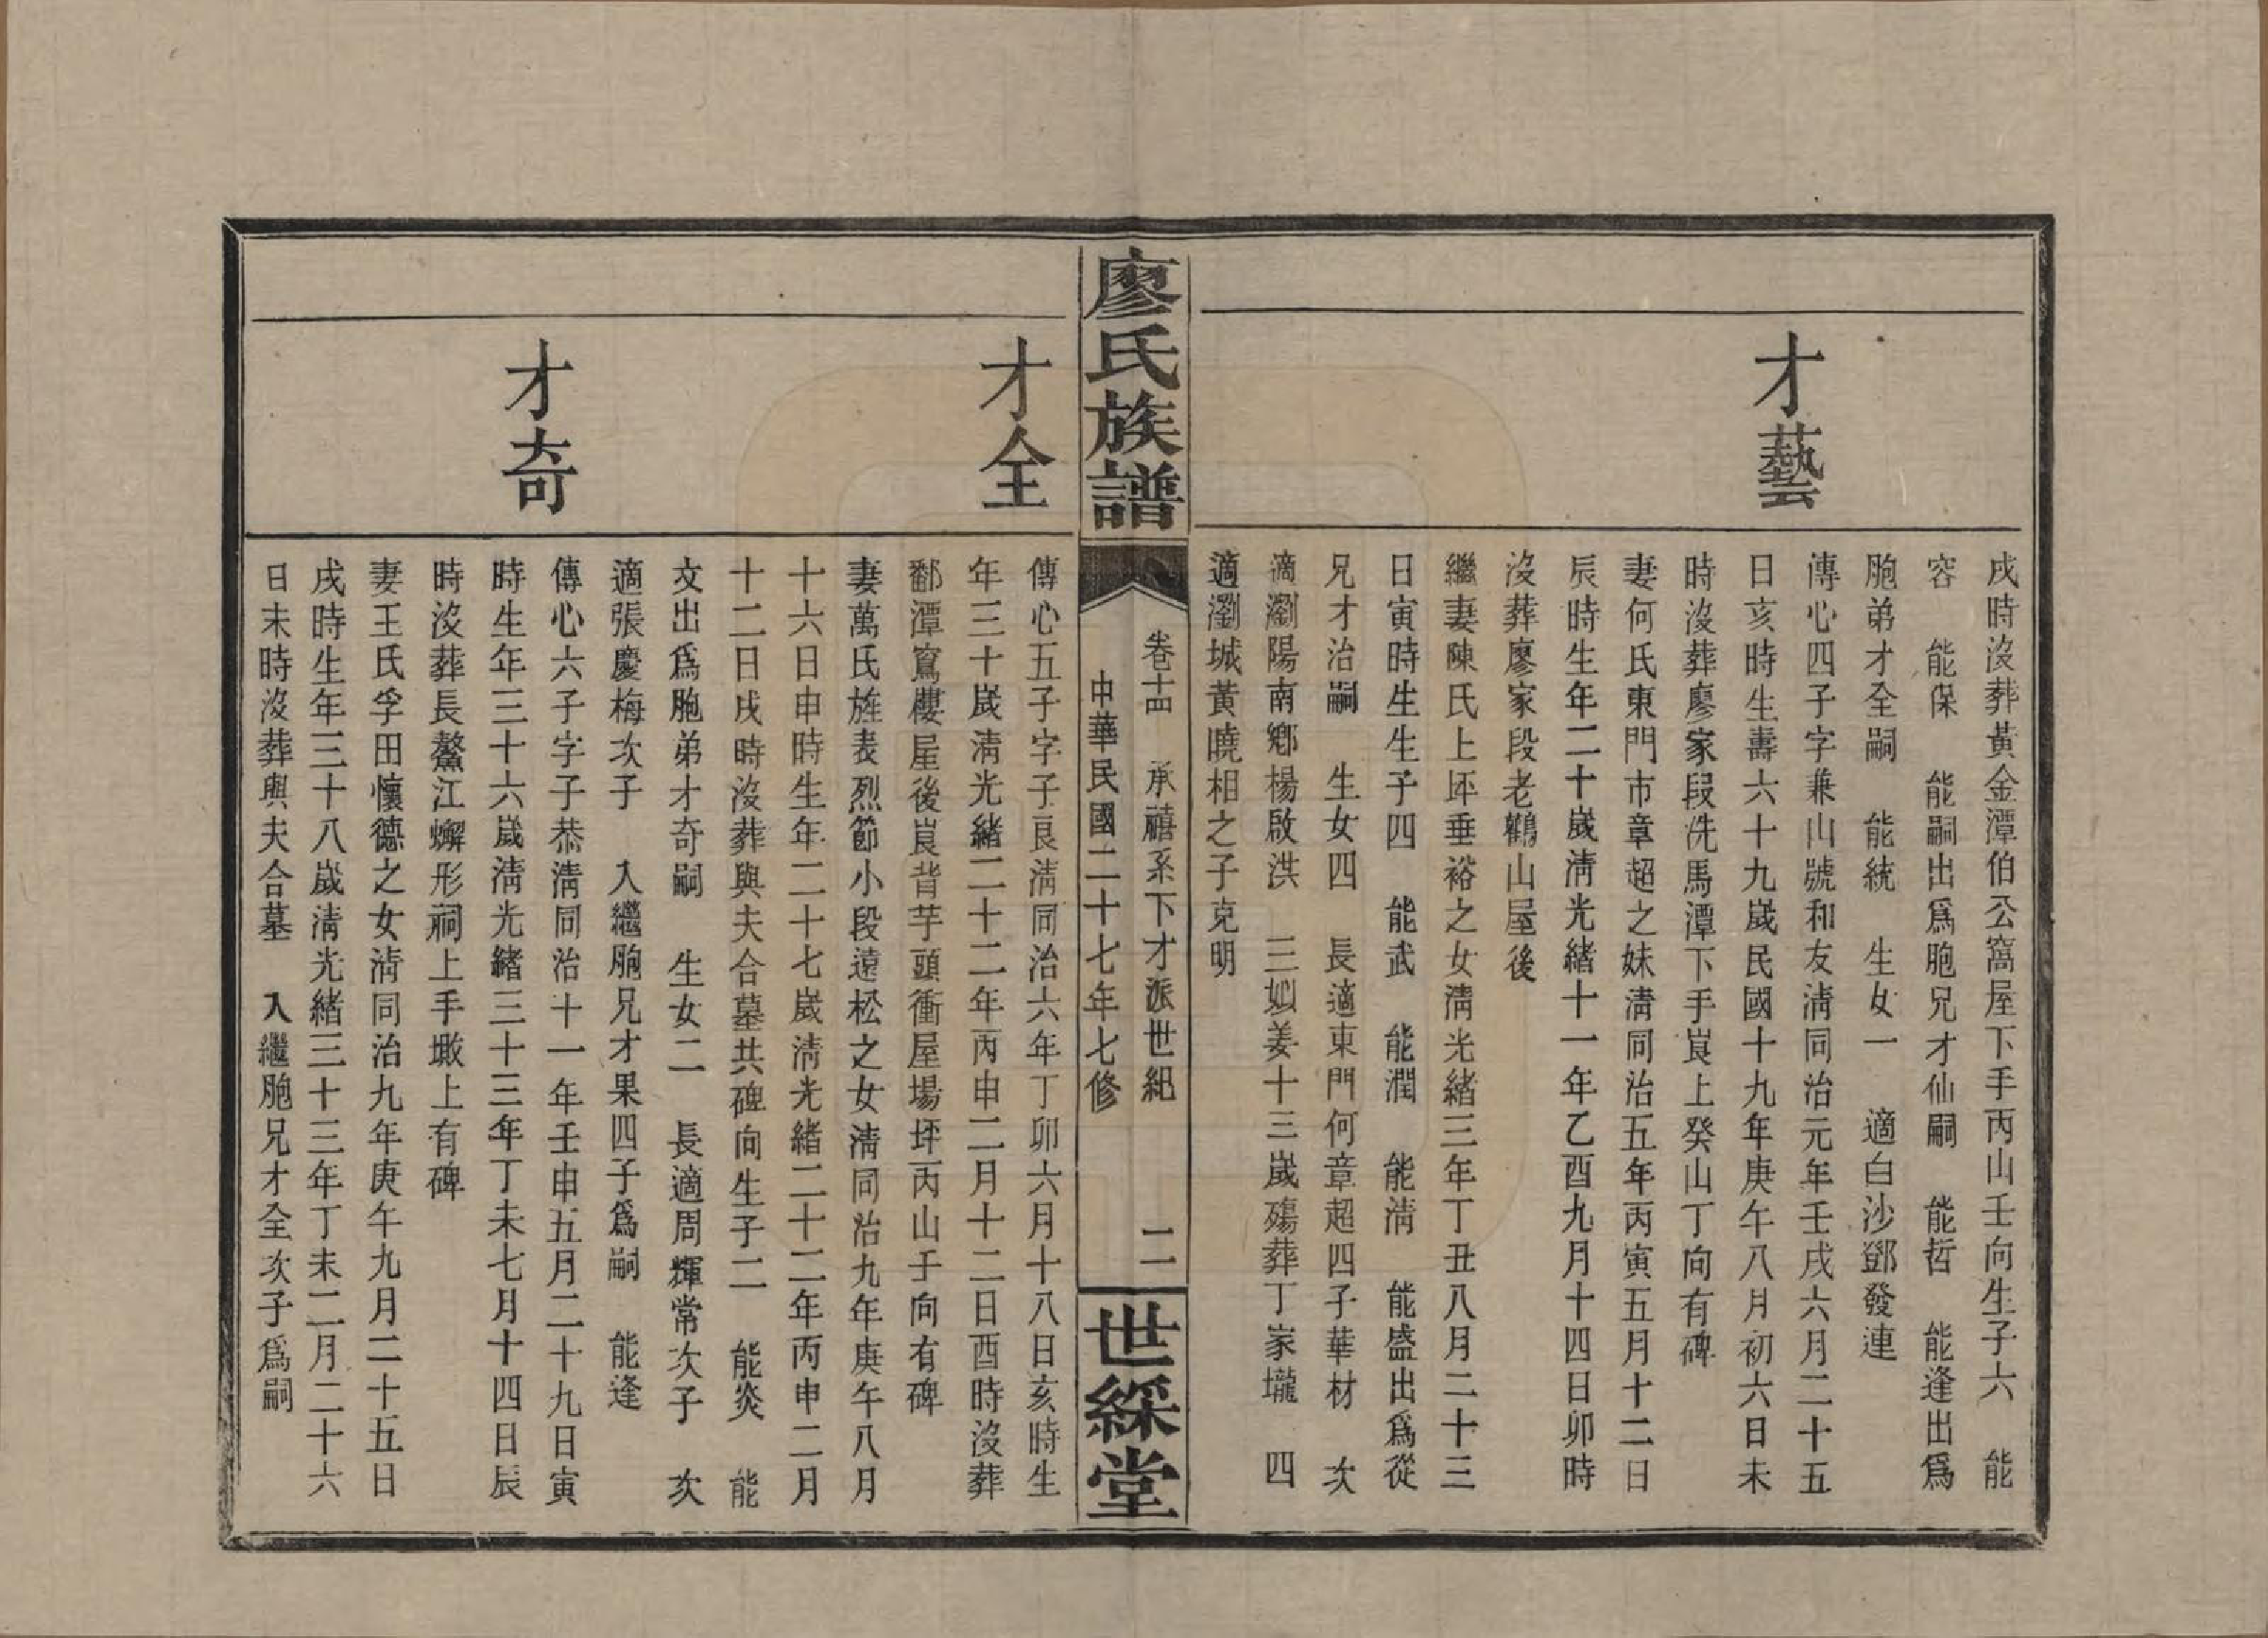 戌時沒葬黃金潭伯公窩屋下手丙山壬向生子六　能
容　能保　能嗣出爲胞兄才仙嗣　能哲　能逢出爲
胞弟才全嗣　能統　生女一　適白沙鄧發連
才藝
傳心四子字兼山號和友淸同治元年壬戌六月二十五
日亥時生壽六十九歲民國十九年庚午八月初六日未
時沒葬廖家段洗馬潭下手崀上癸山丁向有碑
妻何氏東門市章超之妹淸同治五年丙寅五月十二日
辰時生年二十歲淸光緒十一年乙酉九月十四日卯時
沒葬廖家段老鸛山屋後
繼妻陳氏上坏垂裕之女淸光緒三年丁丑八月二十三
日寅時生生子四　能武　能潤　能淸　能盛出爲從
兄才治嗣　生女四　長適東門何章超四子華材　次
適瀏陽南鄉楊啟洪　三姒姜十三歲殤葬丁家壠　四
適瀏城黃曉相之子克明
廖氏族譜
卷十四　承禧系下才派世紀　二
中華民國二十七年七修
世綵堂
才全
傳心五子字子良淸同治六年丁卯六月十八日亥時生
年三十歲淸光緒二十二年丙申二月十二日酉時沒葬
鄱潭窩樓屋後崀背芋頭衝屋場坪丙山壬向有碑
妻萬氏旌表烈節小段遠松之女淸同治九年庚午八月
十六日申時生年二十七歲淸光緒二十二年丙申二月
十二日戌時沒葬與夫合墓共碑向生子二　能炎　能
文出爲胞弟才奇嗣　生女二　長適周輝常次子　次
適張慶梅次子　入繼胞兄才果四子爲嗣　能逢
才奇
傳心六子字子恭淸同治十一年壬申五月二十九日寅
時生年三十六歲淸光緒三十三年丁未七月十四日辰
時沒葬長鰲江蠏形祠上手墩上有碑
妻王氏孚田懷德之女淸同治九年庚午九月二十五日
戌時生年三十八歲淸光緒三十三年丁未二月二十六
日未時沒葬與夫合墓　入繼胞兄才全次子爲嗣